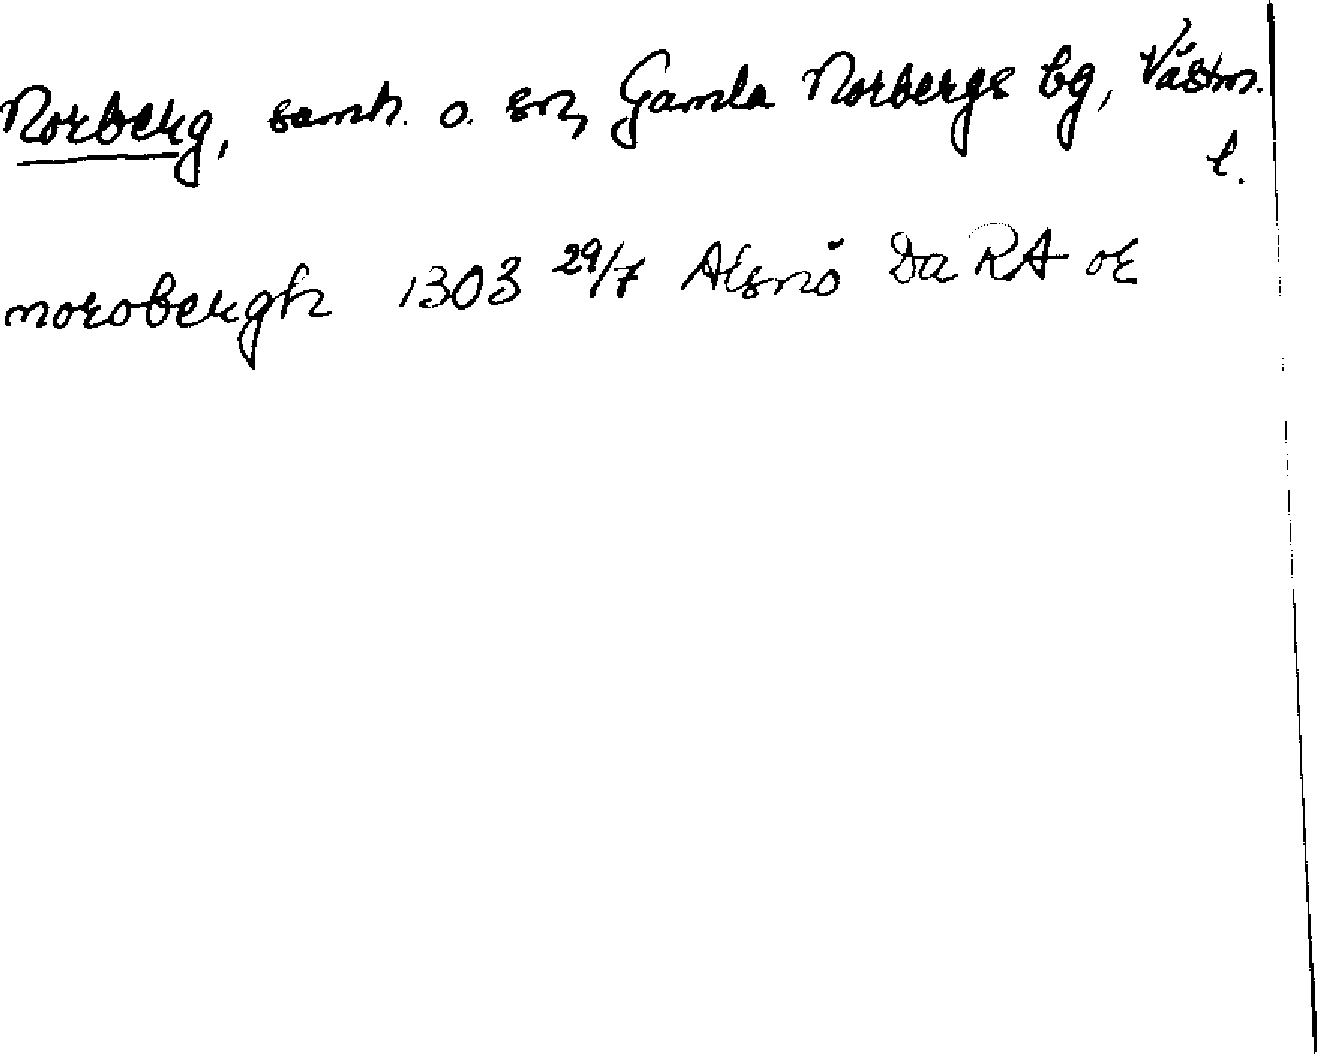 Norberg, samh. o. sn, Gamla Norbergs bg, Västm.
l.
norobergh 1303 29/7 Alsnö Da RA or